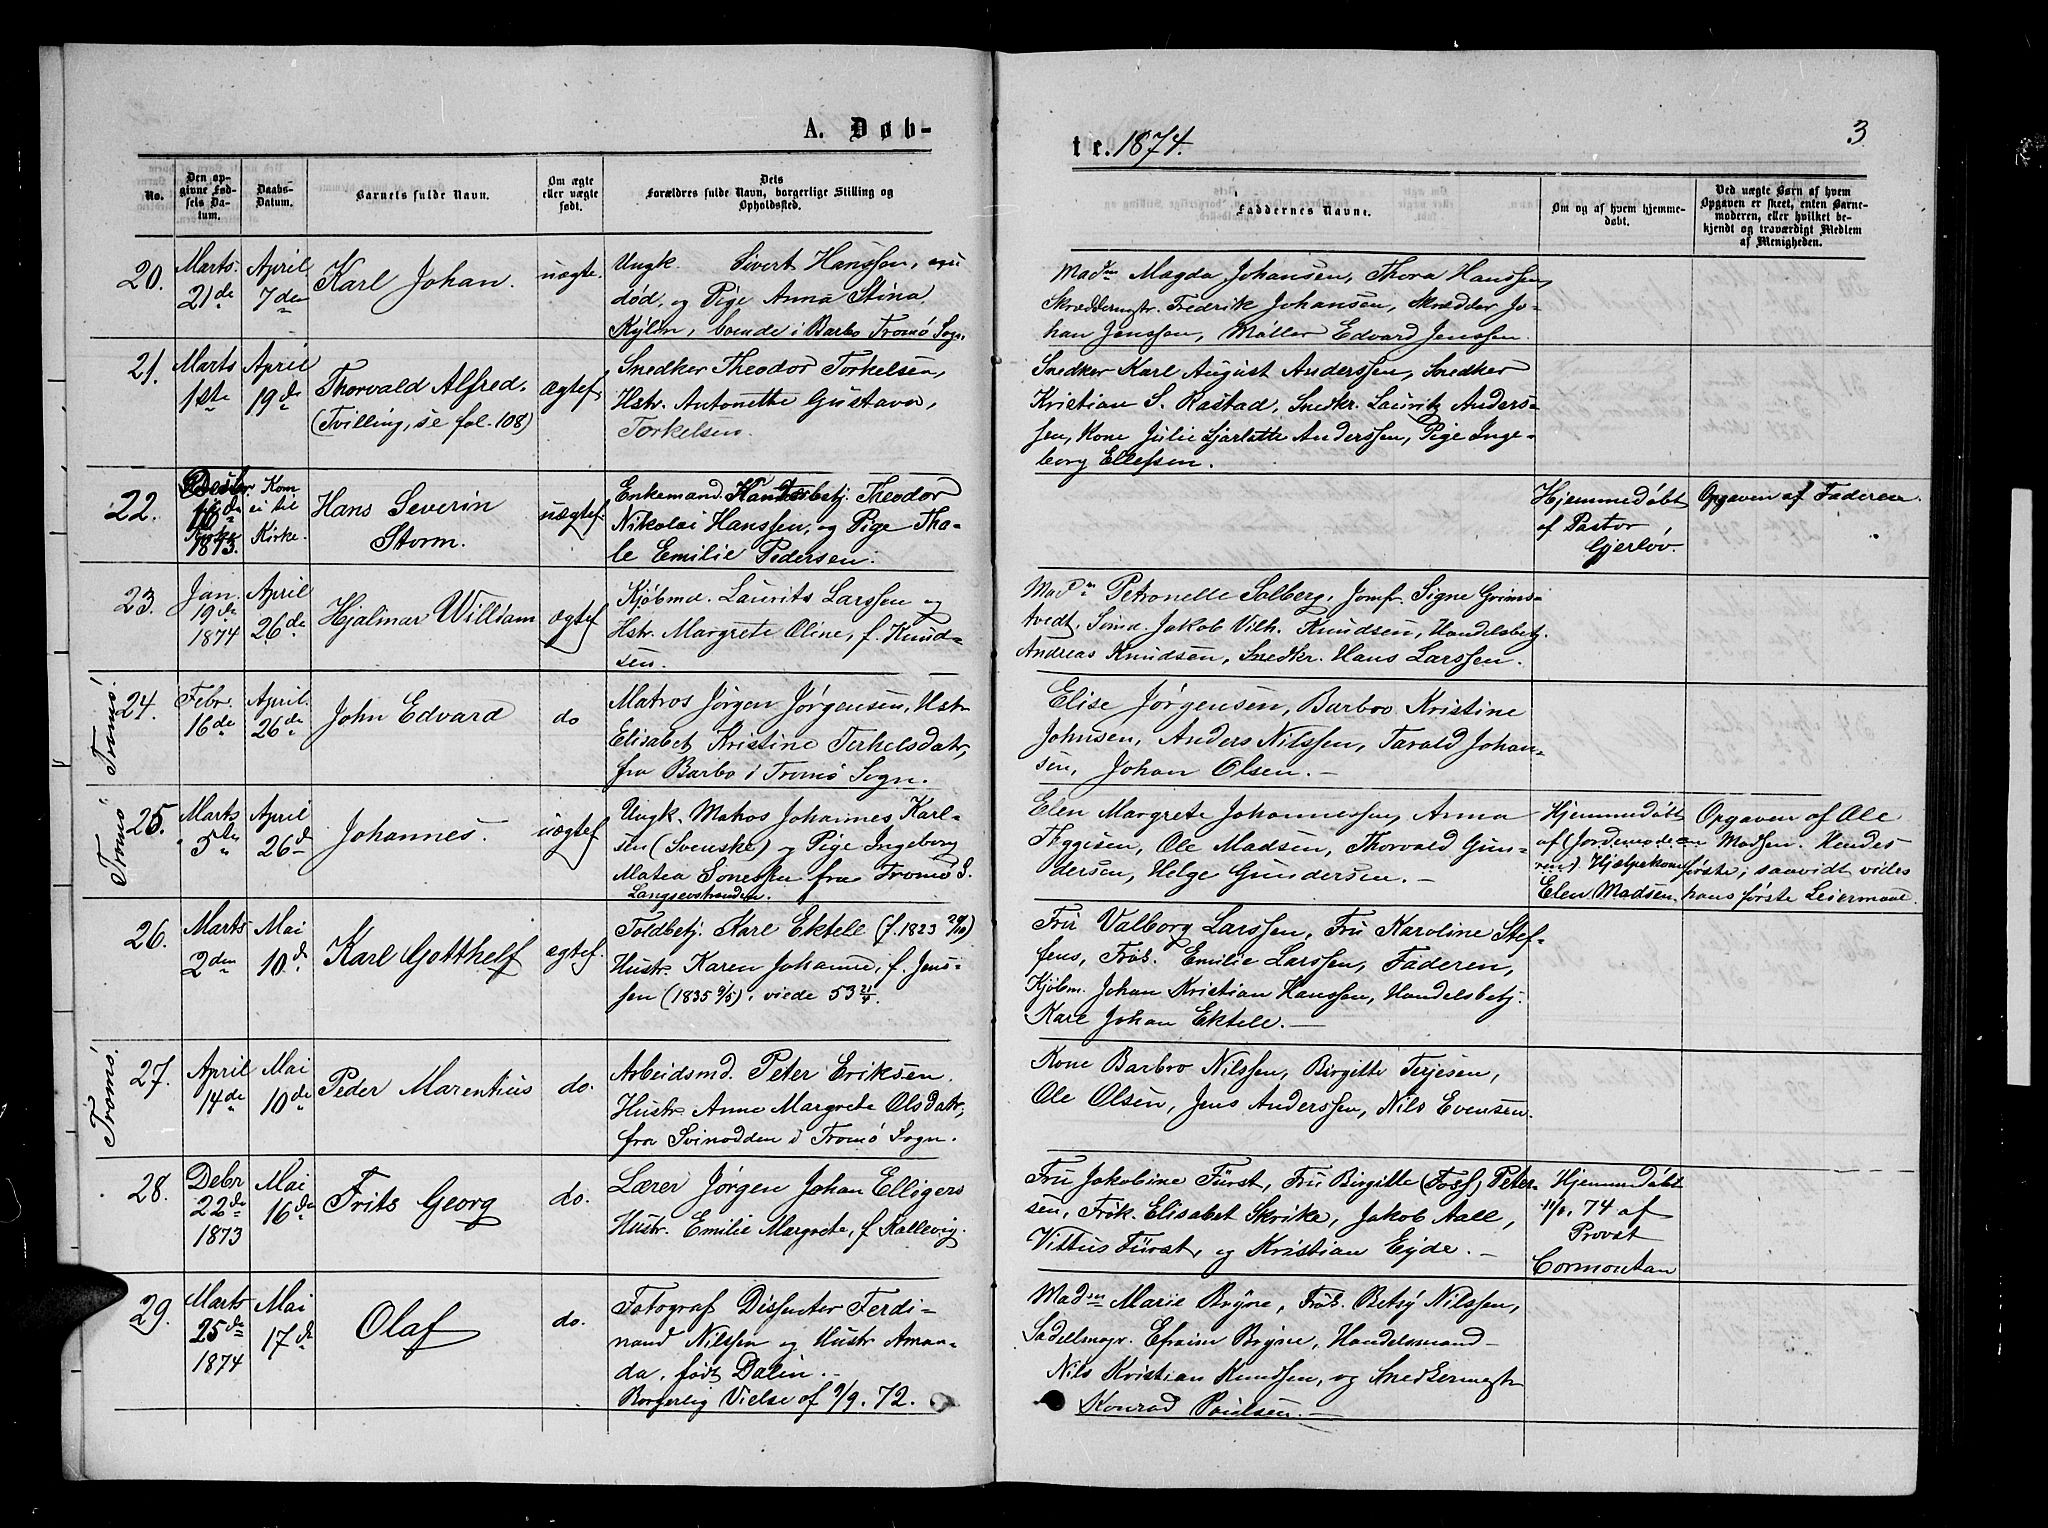 A. Døb-
te. 1874.
3
No.
Den op-
givne Fød-
sels Da-
tum.
Daabs-
Datum.
Barnets fulde Navn.
Om ægte
eller uægte
født.
Dets
Forældres fulde Navn, borgerlige Stilling og
Opholdssted.
Faddernes Navne.
Om og af hvem hjemme-
døbt.
Ved uægte Børn af hvem
Opgaven er skeet, enten Barne-
moderen, eller hvilket be-
kjendt og troværdigt Medlem
af Menigheden.
20.
Marts
21de
April
7den
Karl Johan.
uægte.
Ungk. Sivert Hanssen,
død, og Pige Anna Stina
Kylin, boende i Barbo Tromø Sogn.
Mad.m Magda Johansen, Thora Hanssen,
Skræddermstr. Fedrik Johansen, Skrædder Jo-
han Jenssen, Møller Edvard Jenssen.
21.
Marts
1ste
April
19de
Thorvald Alfred.
(Tvilling, se fol. 108)
ægtef.
Snedker Theodor Torkelsen,
Hstr. Antonette Gustava,
Torkelsen.
Snedker Karl August Anderssen, Snedker
Kristian S. Rastad, Snedkr. Lauritz Anders-
sen, Kone Julie Sjarlotte Anderssen, Pige Inge-
borg Ellefsen.
22.
1873.
Kom
ei til
Kirke.
Hans Severin
Storm.
uægtef.
Enkemand Theodor
Nikolai Hanssen, og Pige Tha-
le Emilie Pedersen.
Hjemmedøbt
af Pastor
Gjerløv.
Opgaven af Faderen.
23.
Jan.
19de
1874
April
26de
Hjalmar William
ægtef.
Kjøbmd. Laurits Larssen og
Hstr. Margrete Oline, f. Knud-
sen.
Mad.m Petronelle Solberg, Jomf. Signe Grims-
tvedt, Sømd. Jakob Vilh. Knudsen, Handelsbetj.
Andreas Knudsen, Snedkr. Hans Larssen.
Tromø.
24.
Febr.
16de
April.
26de
John Edvard
do
Matros Jørgen Jørgensen, Hstr.
Elisabet Kristine Terkelsdatr,
fra Barbo i Tromø Sogn.
Elise Jørgensen, Barbro Kristine
Johnsen, Anders Nilssen, Tarald Johan-
sen, Johan Olsen. —
Tromø
25.
Marts
5te
April
26de
Johannes.
uægtef
Ungk. Matros Johannes Karl-
sen (Svenske) og Pige Ingeborg
Matea Sonesen fra Tromø S.
Langsevstranden.
Elen Margrete Johannessen, Anna
Ole Madsen, Thorvald Gun-
dersen, Helge Gundersen. —
Hjemmedøbt
af (Jordemode-
ren) Hjælpekone
Elen Madsen.
Opgaven af Ole
Madsen. Hendes
første, saavidt vides
hans første Leiermaal.
26.
Marts
2den
Mai
10de
Karl Gotthelf
ægtef.
Toldbetj. Karl Ektell (f. 1823 29/10)
Hustr. Karen Johanne, f. Jens-
sen (1835 9/5), viede 53 21/9.
Fru Valborg Larssen, Fru Karoline Stef-
fens, Frøk. Emilie Larssen, Faderen,
Kjøbm. Johan Kristian Hanssen, Handelsbetj.
Karl Johan Ektell. —
Tromø.
27.
April
14de
Mai
10de
Peder Marentius
do.
Arbeidsmd. Peter Eriksen.
Hustr. Anne Margrete Olsdatr,
fra Svinodden i Tromø Sogn.
Kone Barbro Nilssen, Birgitte Terjesen,
Ole Olsen, Jens Anderssen, Nils Evensen.
28.
Debr
22de
1873
Mai
16de
Frits Georg
do.
Lærer Jørgen Johan Elligers
Hustr. Emilie Margrete, f. Kallevig.
Fru Jakobine Fürst, Fru Birgitte (Foss) Peter-
sen, Frøk. Elisabet Skrike, Jakob Aall,
Vittus Fürst, og Kristian Eyde. —
Hjemmedøbt
11/1. 74 af
Provst
Cormontan
29.
Marts
25de
1874
Mai
17de
Olaf
do.
Fotograf Dissenter Ferdi-
nand Nilssen og Hustr Aman-
da, født Dalin.—
Borgerlig Vielse af 9/9. 72.
Madsen Marie Bryne, Frøk. Betsy Nilssen,
Sadelmagr. Efraim Bryne, Handelsmand
Nils Kristian Knudsen, og Snedkermestr
Konrad Poulsen. —